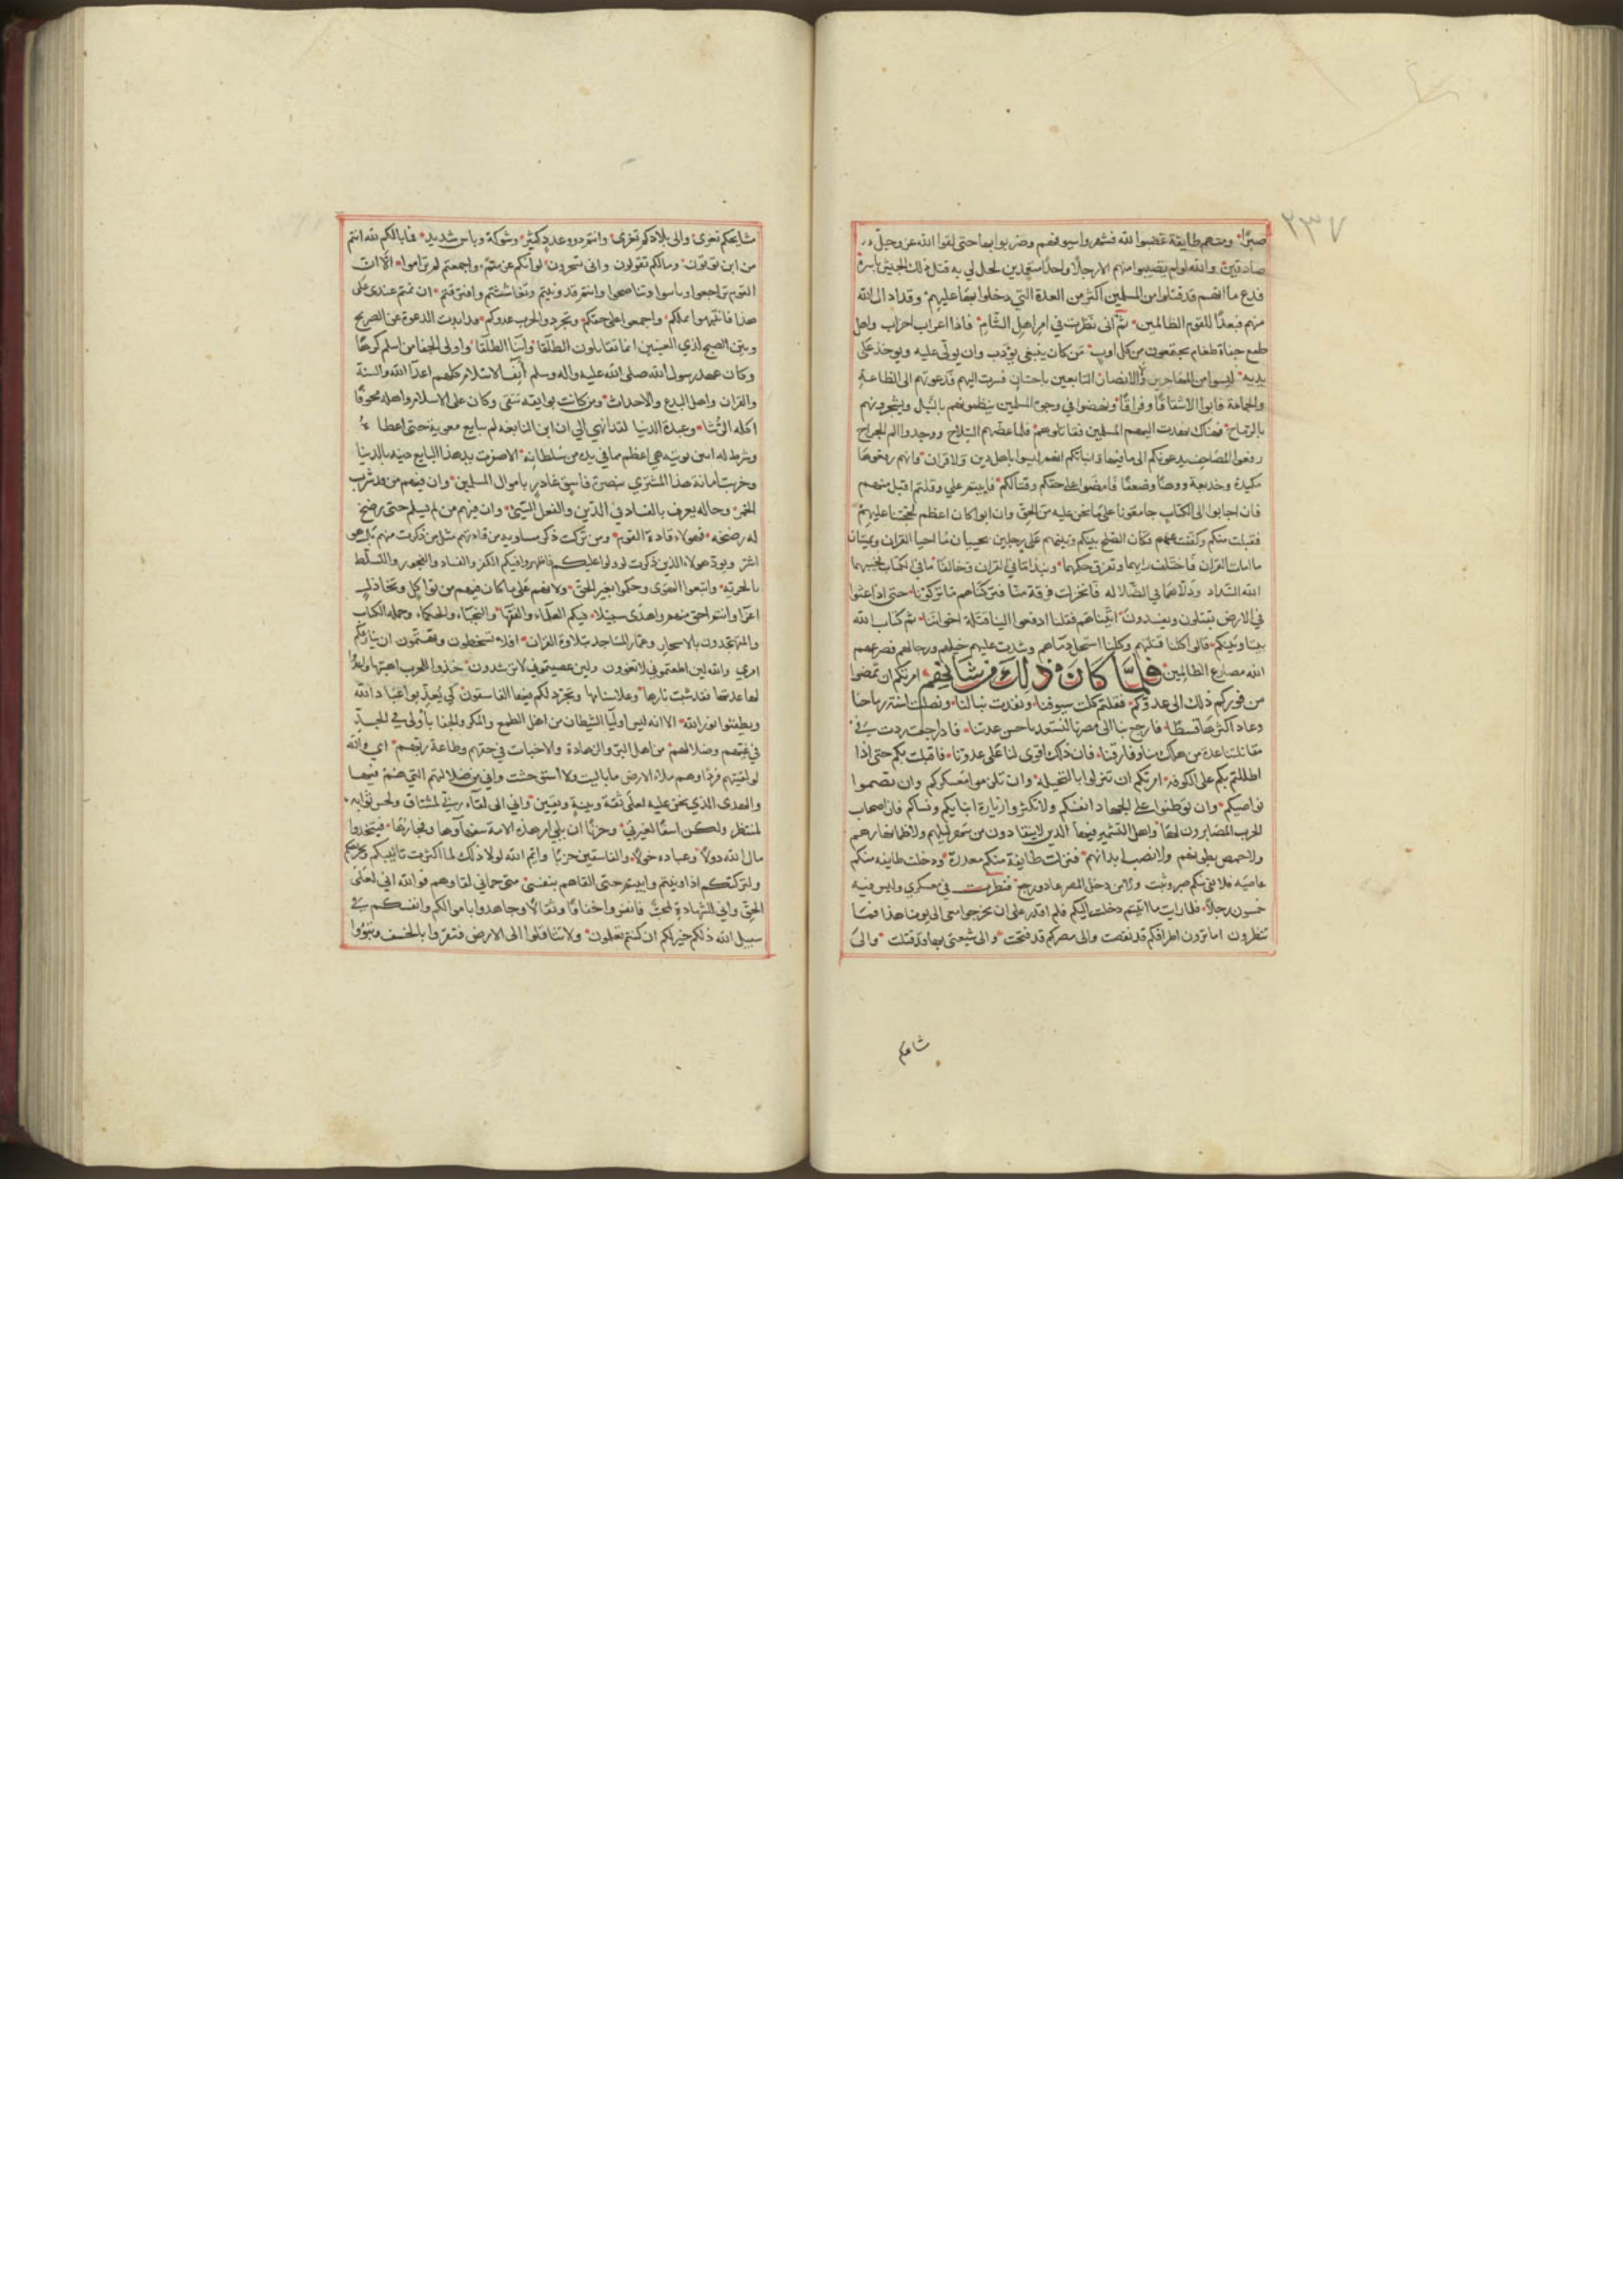 ٢٣٧
صبرًا ومنهم طايفة غضبوا لله فشهروا سيوفهم وضربوا بها حتى لقوا الله عز وجل
صادقين والله لو لم يصيبوا منهم الا رجلا واحدًا متعمدين لحل لي به قتل ذلك الجيش باسره
فدع ما انهم قد قتلوا من المسلمين اكثر من العدة التي دخلوا بها عليهم وقد اد ال الله
منهم فبعدًا للقوم الظالمين ثم انى نظرت في امر اهل الشام فاذا اعراب احزاب واهل
طمع جفاة طغام يجتمعون من كل اوب من كان ينبغى يؤدب وان يولّى عليه ويوخذ على
يديه ليسوا من المهاجرين والانصار التابعين باحسان فسرت اليهم فدعوتهم الى الطاعة
والجماعة فابوا الا شقاقًا وفراقًا ونهضوا في وجوه المسلمين ينظمونهم بالنبل ويشجرونهم
بالرماح فهناك نهدت اليهم المسلمين فقاتلوهم فلما عضّهم السلاح ووجدوا الم الجراح
رفعوا المصاحف يدعونكم الى ما فيها فانباتكم انهم ليسوا باهل دين ولا قران وانهم رفعوها
مكيدة وخديعة ووهنًا وضعفًا فامضوا على حقكم وقتالكم فابيتم علي وقلتم اقبل منهم
فان اجابوا الى الكتاب جامعونا على ما نحن عليه من الحق وان ابوا كان اعظم لحجتنا عليهم
فقبلت منكم وكففت عنهم فكان الصلح بينكم وبينهم على رجلين يحييان ما احيا القران ويميتان
ما امات القران فاختلف رايهما وتفرق حكمهما ونبذا ما في القران وخالفا ما في الكتاب فجنبهما
الله السداد ودلاهما في الضلالة فانخزلت فرقة منّا فتركناهم ما تركونا حتى اذا عثوا
في الارض يقتلون ويفسدون اتيناهم فقلنا ادفعوا الينا قتلة اخواننا ثم كتاب الله
بيننا وبينكم قالوا كلنا قتلهم وكلنا استحل دماهم وشدت عليهم خيلهم ورجالهم فصرعهم
الله مصارع الظالمين فلما كان ذلك من شانهم امرتكم ان تمضوا
من فوركم ذلك الى عدوكم فقلتم كلت سيوفنا ونفدت نبالنا ونصلت اسنة رماحنا
وعاد اكثرها قسطًا فارجع بنا الى مصرنا لنستعد باحسن عدتنا فاذا رجعت زدت في
مقاتلتنا عدة من هلك منا وفارقنا فان ذلك اقوى لنا على عدونا فاقبلت بكم حتى اذا
اطللتم بكم على الكوفة امرتكم ان تنزلوا بالنخيلة وان تلزموا معسكركم وان تضموا
نواصيكم وان توطنوا على الجهاد انفسكم ولا تكثروا زيارة ابنايكم ونساكم فان اصحاب
الحرب المصابرون لها واهل التشمير فيها الذين لا ينقادون من سهر ليلهم ولا ظما نهارهم
ولا خمص بطونهم ولا نصب ابدانهم فنزلت طايفة منكم معذرة ودخلت طايفة منكم
عاصية فلا من بقى منكم صبر وثبت ولا من دخل المصر عاد ورجع فنظرت في عسكري وليس فيه
خمسون رجلًا فلما رايت ما اتيتم دخلت اليكم فلم اقدر على ان تخرجوا معى الى يومنا هذا فما
تنظرون اما ترون اطرافكم قد نقصت والى مصركم قد فتحت والى شيعتى بها قد قتلت والى
مسايحكم تعرى والى بلادكم تغزى وانتم ذوو عدد كثير وشوكة وباس شديد فما بالكم لله انتم
من اين توتون ومالكم تقولون وانى تسحرون لو انكم عزمتم واجمعتم لم تراموا الا ان
القوم تراجعوا وتاسوا وتناصحوا وانتم قد ونيتم وتغاششتم وافترقتم ان تمتم عندى على
هذا فانتبهوا واجمعوا على حقكم وتجردوا لحرب عدوكم وقد ابدت الدعوة عن الصريح
وبين الصبح لذي العينين انما تقاتلون الطلقا وابنا الطلقا واولى الجفا من اسلم كرهًا
وكان عهد رسول الله صلى الله عليه واله وسلم أنف الاسلام كلهم اعدا الله والسنة
والقران واهل البدع والاحداث ومن كانت بوايقه تتقى وكان على الاسلام واهله مخوفًا
اكلة الرُّشا وعبدة الدنيا لقد انهي الي ان ابن النابغة لم يبايع معوية حتى اعطاه
وشرط له ان يوتيه هي اعظم مما في يده من سلطانه الا صفرت يد هذا البايع دينه بالدنيا
وخزيت امانة هذا المشتري بنصرة فاسق غادر باموال المسلمين وان فيهم من قد شرب
الخمر وحاله يعرف بالفساد في الدين والفعل السيئ وان منهم من لم يسلم حتى رضخ
له رضخه فهولاء قادة القوم ومن تركت ذكر مساويه من قادتهم مثل من ذكرت منهم بل هو
اشر ويود هولاء الذين ذكرت لو ولوا عليكم فاظهروا فيكم الكفر والفساد والفجور والتسلط
بالجرية واتبعوا الهوى وحكموا بغير الحق ولانتم على ما كان فيكم من تواكل وتخاذل
اعزّ وانتم احق منهم واهدى سبيلا فيكم العلماء والفقها والنجباء والحكماء وحملة الكتاب
والمتهجدون بالاسحار وعمار المساجد بتلاوة القران افلا تسخطون وتهتمون ان ينازعكم
امري والله لين اطعتموني لا تغوون ولين عصيتموني لا ترشدون خذوا للحرب اهبتها واعدوا
لها عدتها فقد شبت نارها وعلا سناها وتجرد لكم فيها الفاسقون كي يعذبوا عباد الله
ويطفئوا نور الله الا انه ليس اوليا الشيطان من اهل الطمع والمكر والجفا بأولى في الجدّ
في غيهم وضلالهم من اهل البر والزهادة والاخبات في حقهم وطاعة ربهم اي والله
لو لقيتهم فردًا وهم ملاء الارض ما باليت ولا استوحشت واني من ضلالتهم التي هم فيها
والهدى الذي نحن عليه لعلى ثقة وبينة ويقين واني الى لقاء ربي لمشتاق ولحسن ثوابه
لمنتظر ولكن اسفًا يعتريني وحزنًا ان يلي امر هذه الامة سفهاؤها وفجارها فيتخذوا
مال الله دولًا وعباده خولًا والفاسقين حزبًا وايم الله لولا ذلك لما اكثرت تانيبكم وتحريضكم
ولتركتكم اذا ونيتم وابيتم حتى القاهم بنفسي متى حم لي لقاوهم فوالله اني لعلى
الحق واني للشهادة لمحب فانفروا خفافًا وثقالًا وجاهدوا باموالكم وانفسكم في
سبيل الله ذلكم خير لكم ان كنتم تعلمون ولا تثاقلوا الى الارض فتقروا بالخسف وتبؤوا